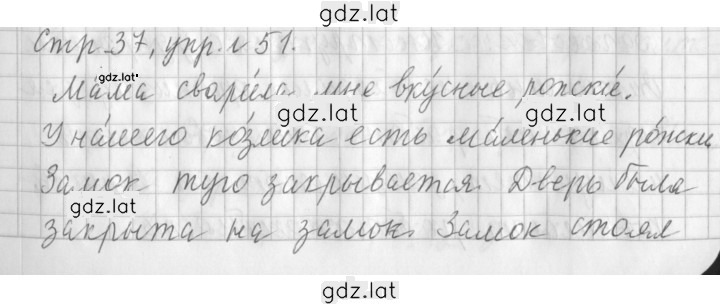 gdz.lat
Стр. 37, упр. № 51.
gdz.lat
Ма́ма свари́ла мне вку́сные рожки́.
gdz.lat gdz.lat
У на́шего ко́злика есть ма́ленькие ро́жки
Замок туго закрывается. Дверь была
gdz.lat gdz.lat
закрыта на замок. Замок стоял
gdz.lat